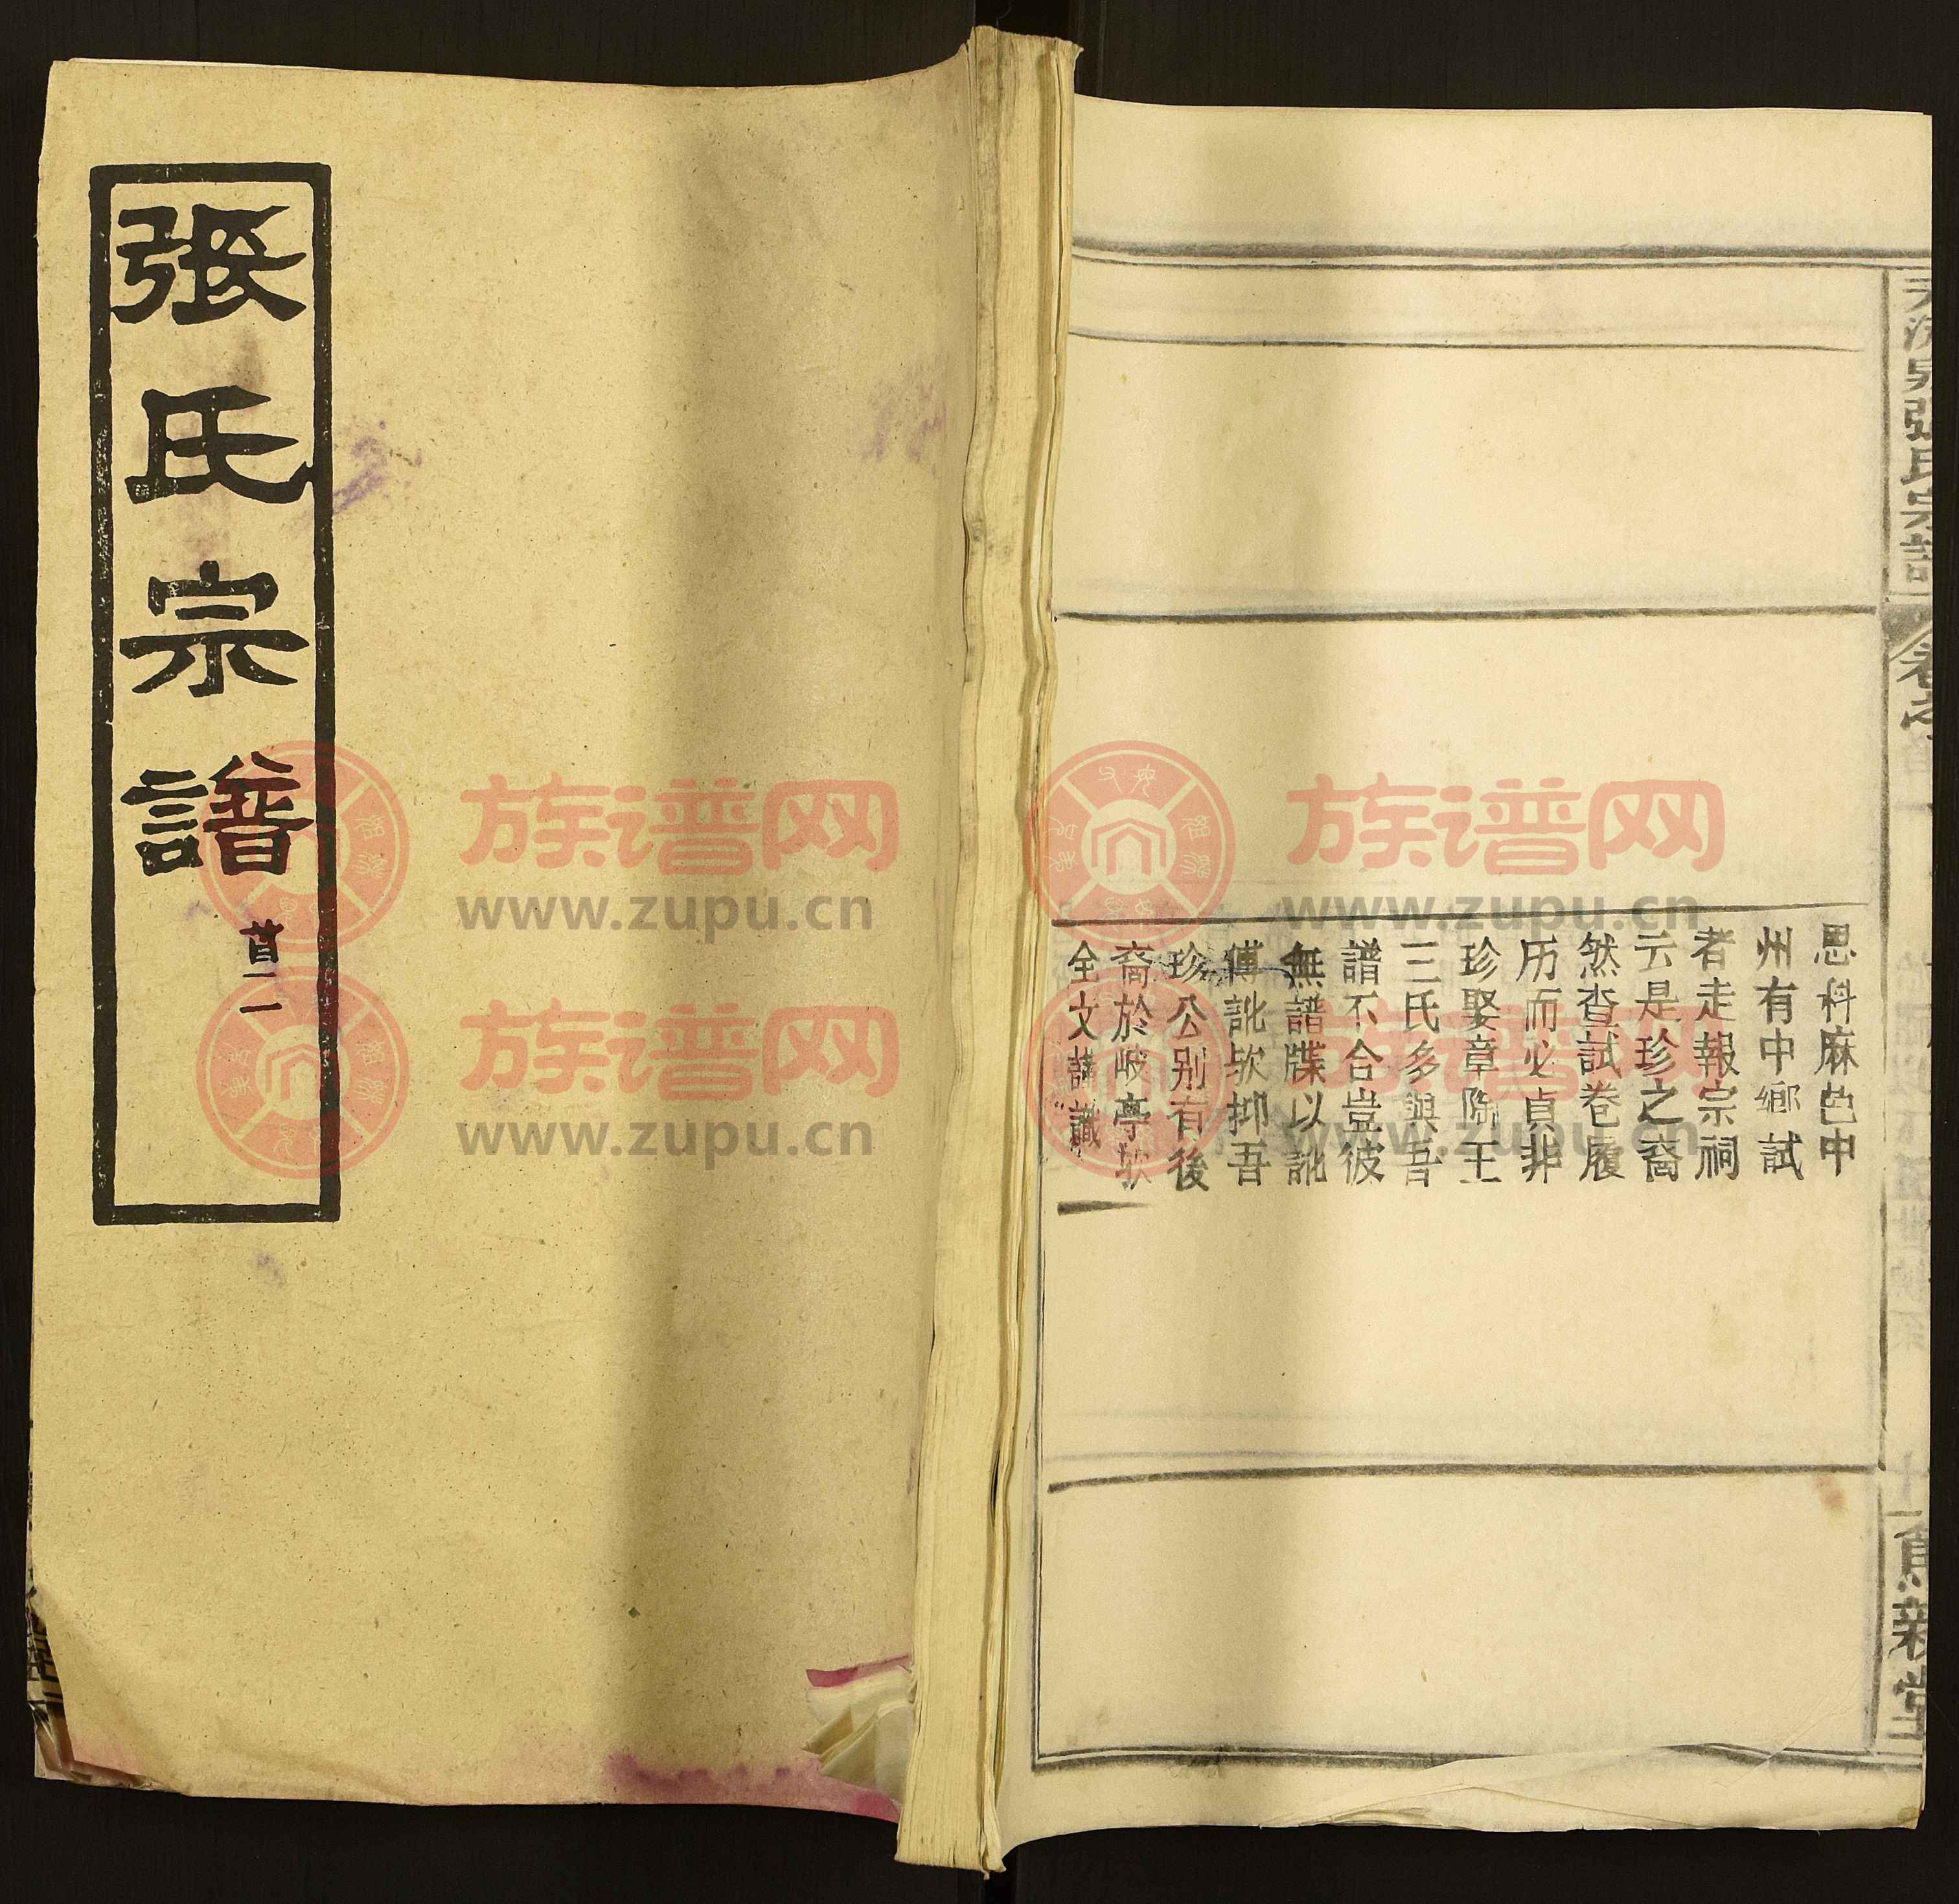 張氏宗譜
首二
思科麻邑中
州有中鄉試
者走報宗祠
云是珍之裔
然查試卷履
历而必貞非
珍娶章陶王
三氏多與吾
譜不合豈彼
無譜牒以訛
傳訛欤抑吾
珍公别有後
裔於岐亭欤
全文謹識
張氏宗譜
卷之首
族谱网
www.zupu.cn
族谱网
www.zupu.cn
族谱网
www.zupu.cn
族谱网
www.zupu.cn